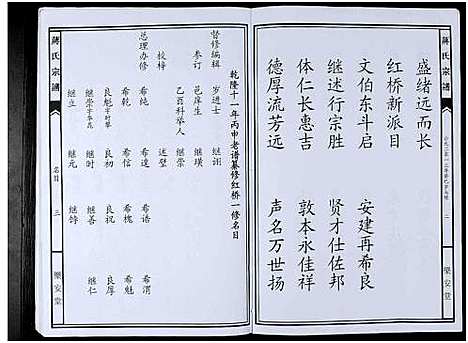 蒋氏宗谱
二
乐安堂
盛绪远而长
红桥新派目
文伯东斗启　安建再希良
继述行宗胜　贤才仕佐邦
体仁长惠吉　敦本永佳祥
德厚流芳远　声名万世扬
乾隆十一年丙申老谱纂修红桥一修名目
督修编辑　岁进士　继诩
参订　邑庠生　继璜
乙酉科举人　继崇
校梓　述壁
总理办修　希纯　希逵　希语　希渭
希乾　希信　希槐　希魁
良初　良祝　良厚
继时　继善　继仁
继立　继元　继特
蒋氏宗谱
名目
三
乐安堂